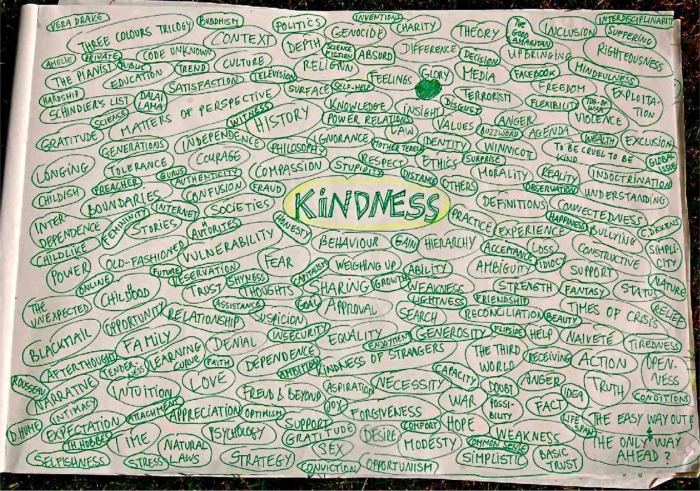 VERA DRAKE BUDDHISM POLITICS INVENTIONS CHARITY THEORY THE GOOD SAMARITAN INCLUSION SUFFERING
THREE COLOURS TRILOGY CONTEXT GENOCIDE DIFFERENCE RIGHTEOUSNESS
AMELIE PRIVATE CODE UNKNOWN DEPTH SCIENCE FICTION ABSURD DECISION UPBRINGING
THE PIANIST PUBLIC TREND CULTURE RELIGION FEELINGS GLORY MEDIA FACEBOOK MINDFULNESS
HARDSHIP EDUCATION SATISFACTION TELEVISION SURFACE SELF-HELP TERRORISM FREEDOM EXPLOITATION
SCHINDLER'S LIST DALAI LAMA KNOWLEDGE INSIGHT DISGUST FLEXIBILITY TUG-OF-WAR
SCIENCE MATTERS OF PERSPECTIVE WITNESS HISTORY POWER RELATIONS VALUES ANGER VIOLENCE
GRATITUDE GENERATIONS INDEPENDENCE IGNORANCE LAW IDENTITY BUZZWORD AGENDA WEALTH EXCLUSION
PHILOSOPHY MOTHER TERESA WINNICOT TO BE CRUEL TO BE KIND
LONGING TOLERANCE COURAGE COMPASSION STUPIDITY RESPECT ETHICS SURPRISE MORALITY REALITY INDOCTRINATION
CHILDISH PREACHER GURUS AUTHENTICITY CONFUSION FRAUD DISTANCE OTHERS OBSERVATION UNDERSTANDING
INTERDEPENDENCE BOUNDARIES INTERNET SOCIETIES KiNDNESS DEFINITIONS CONNECTEDNESS
FEMININITY STORIES HONESTY PRACTICE EXPERIENCE HAPPINESS BULLYING C. DICKENS
CHILDLIKE OLD-FASHIONED VULNERABILITY BEHAVIOUR GAIN HIERARCHY ACCEPTANCE LOSS CONSTRUCTIVE SIMPLICITY
POWER FUTURE RESERVATION FEAR CAPITALISM WEIGHING UP ABILITY AMBIGUITY IDIOCY SUPPORT
ONLINE CHILDHOOD TRUST SHYNESS THOUGHTS SHARING GROWTH WEAKNESS STRENGTH FANTASY STATUS NATURE
THE UNEXPECTED ASSISTANCE GOAL APPROVAL LIGHTNESS FRIENDSHIP TIMES OF CRISIS
OPPORTUNITY RELATIONSHIP SUSPICION SEARCH RECONCILIATION BEAUTY RELIEF
BLACKMAIL FAMILY DENIAL INSECURITY EQUALITY ENJOYMENT GENEROSITY FLIPSIDE HELP NAIVETE TIREDNESS
AFTERTHOUGHT TENDERNESS LEARNING CURVE FAITH DEPENDENCE KINDNESS OF STRANGERS THE THIRD WORLD RECEIVING ACTION OPENNESS
ROUSSEAU NARRATIVE INTUITION LOVE AMBITION ASPIRATION NECESSITY CAPACITY DOUBT IDEA TRUTH CONDITIONS
INTIMACY ATTACHMENT FREUD & BEYOND JOY WAR POSSIBILITY FACT
D. HUME EXPECTATION APPRECIATION OPTIMISM SUPPORT FORGIVENESS HOPE LIFE SPAN THE EASY WAY OUT?
TH. HOBBES TIME PSYCHOLOGY GRATITUDE DESIRE COMFORT WEAKNESS THE ONLY WAY AHEAD?
SELFISHNESS STRESS NATURAL LAWS STRATEGY SEX MODESTY COMMON SENSE SIMPLISTIC BASIC TRUST
CONVICTION OPPORTUNISM